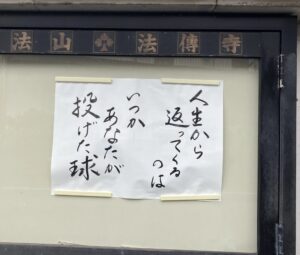 法山 法傳寺
人生から
返ってくる
のは
いつか
あなたが
投げた球